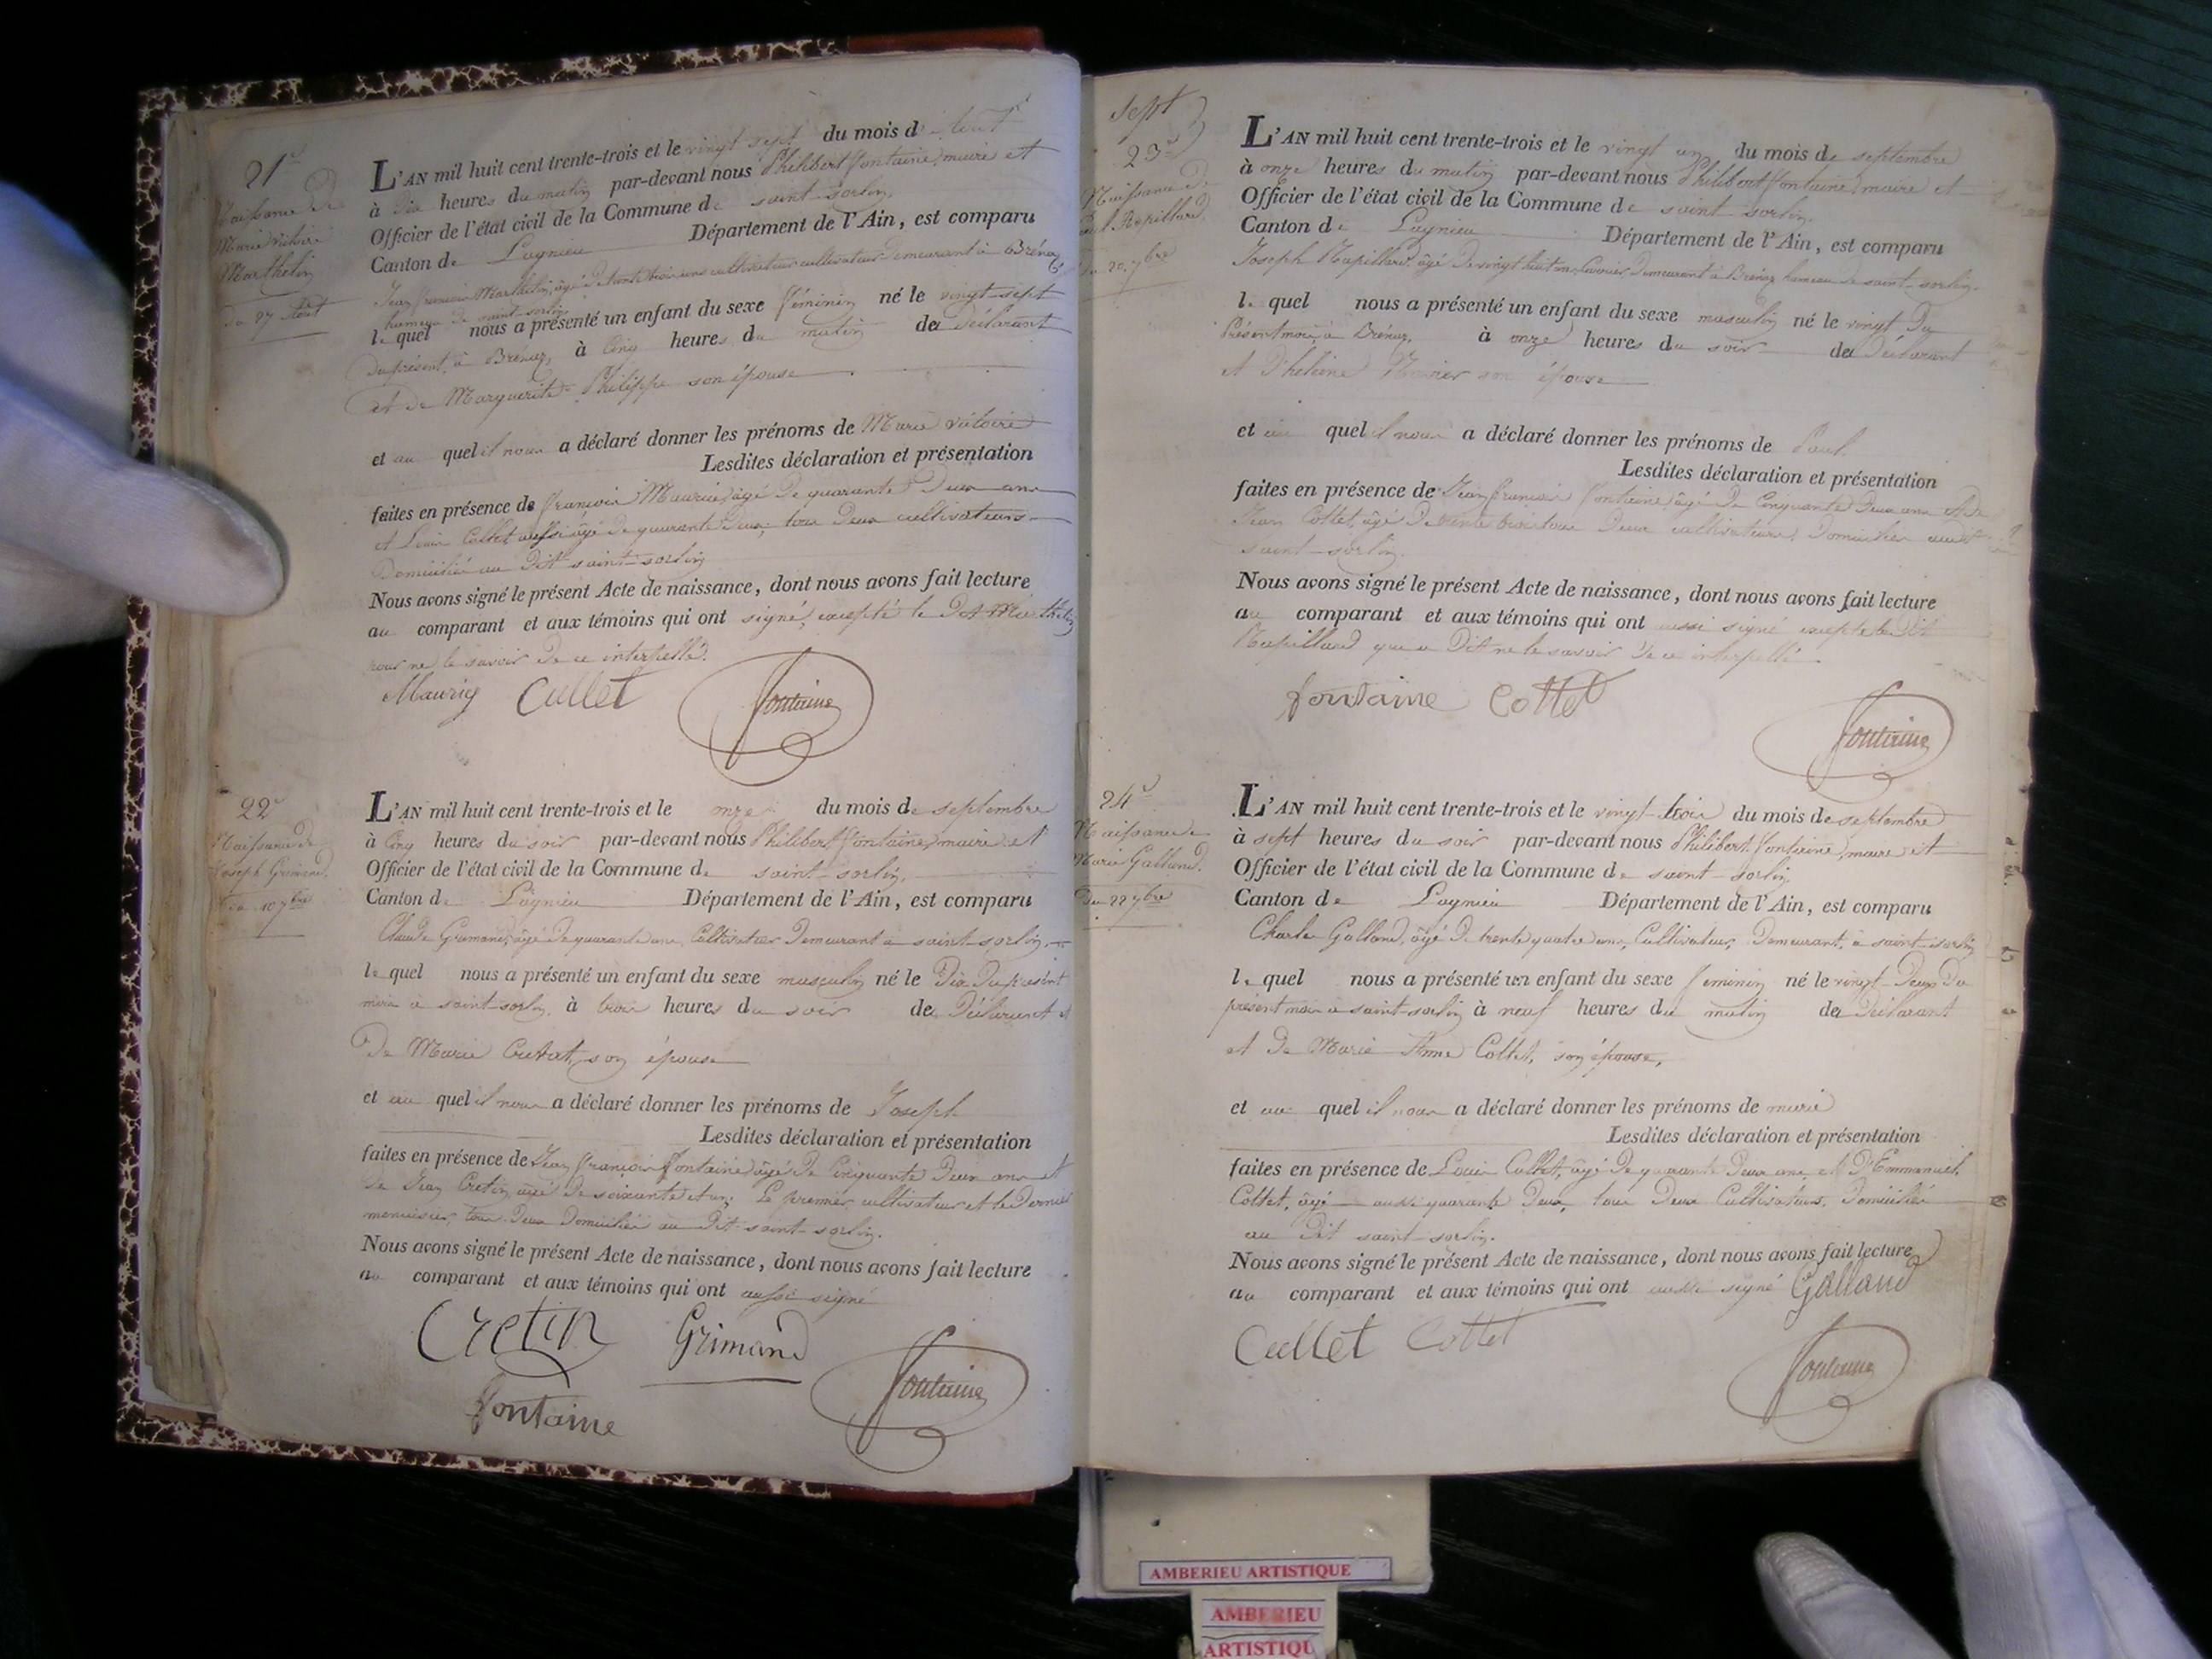 21e
Naissance de
Marie victoire
Marthelin
du 27 Aout
L'AN mil huit cent trente-trois et le vingt sept du mois d'aout
à dix heures du matin par-devant nous Philibert fontaine, maire et
Officier de l'état civil de la Commune de saint-sorlin
Canton de Lagnieu Département de l'Ain, est comparu
Jean françois Marthelin, âgé de trente trois ans cultivateur cultivateur demeurant à Brénaz
hameau de saint-sorlin
lequel nous a présenté un enfant du sexe féminin né le vingt-sept
du présent, à Brénaz, à cinq heures du matin de déclarant
et de Marguerite Philippe son épouse
et au quel il nous a déclaré donner les prénoms de Marie victoire
Lesdites déclaration et présentation
faites en présence de françois Maurice, âgé de quarante deux ans
et Louis Collet aussi âgé de quarante deux, tous deux cultivateurs
Domiciliés au dit saint-sorlin
Nous avons signé le présent Acte de naissance, dont nous avons fait lecture
au comparant et aux témoins qui ont signé, excepté le dit Marthelin
pour ne le savoir de ce interpellé.
Maurig Cullet fontaine
22e
Naissance de
Joseph Grimand.
du 10 7bre
L'AN mil huit cent trente-trois et le onze du mois de septembre
à cinq heures du soir par-devant nous Philibert fontaine, maire et
Officier de l'état civil de la Commune de saint-sorlin.
Canton de Lagnieu Département de l'Ain, est comparu
Claude Grimand, âgé de quarante ans, Cultivateur demeurant à saint-sorlin.
lequel nous a présenté un enfant du sexe masculin né le dix du présent
mois à saint-sorlin, à trois heures du soir de déclarant et
de Marie son épouse
et au quel il nous a déclaré donner les prénoms de Joseph
Lesdites déclaration et présentation
faites en présence de Jean françois fontaine âgé de cinquante deux ans et
de Jean Cretin, âgé de soixante et un; le premier cultivateur et le dernier
menuisier, tous deux domiciliés au dit saint-sorlin.
Nous avons signé le présent Acte de naissance, dont nous avons fait lecture
au comparant et aux témoins qui ont aussi signé
Cretin Grimand
fontaine fontaine
sept
23e
Naissance de
Paul Rapillard.
du 20 7bre
L'AN mil huit cent trente-trois et le vingt un du mois de septembre
à onze heures du matin par-devant nous Philibert fontaine, maire et
Officier de l'état civil de la Commune de saint-sorlin,
Canton de Lagnieu Département de l'Ain, est comparu
Joseph Rapillard, âgé de vingt huit ans, demeurant à Brénaz hameau de saint-sorlin.
lequel nous a présenté un enfant du sexe masculin né le vingt du
présent mois, à Brénaz, à onze heures du soir de déclarant
et d'helaine son épouse
et au quel il nous a déclaré donner les prénoms de Paul.
Lesdites déclaration et présentation
faites en présence de Jean françois fontaine, âgé de cinquante deux ans et de
Jean Cottet, âgé de trente trois tous deux cultivateurs, domiciliés audit
saint-sorlin.
Nous avons signé le présent Acte de naissance, dont nous avons fait lecture
au comparant et aux témoins qui ont aussi signé excepté le dit
Rapillard qui a dit ne le savoir de ce interpellé.
fontaine Cottet
fontaine
24e
Naissance de
Marie Galland.
du 22 7bre
L'AN mil huit cent trente-trois et le vingt-trois du mois de septembre
à sept heures du soir par-devant nous Philibert fontaine, maire et
Officier de l'état civil de la Commune de saint-sorlin
Canton de Lagnieu Département de l'Ain, est comparu
Charles Galland, âgé de trente quatre ans, Cultivateur, demeurant, à saint-sorlin
lequel nous a présenté un enfant du sexe feminin né le vingt-deux du
présent mois à saint-sorlin à neuf heures du matin de déclarant
et de Marie Anne Cottet, son épouse,
et au quel il nous a déclaré donner les prénoms de marie
Lesdites déclaration et présentation
faites en présence de Louis Cullet, âgé de quarante deux ans et d'Emmanuel
Cottet, âgé aussi quarante deux, tous deux Cultivateurs, domiciliés
au dit saint-sorlin.
Nous avons signé le présent Acte de naissance, dont nous avons fait lecture
au comparant et aux témoins qui ont aussi signé Galland
Cullet Cottet
fontaine
AMBERIEU ARTISTIQUE
AMBERIEU
ARTISTIQU